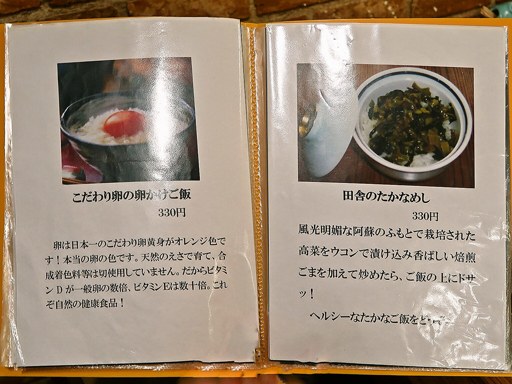 こだわり卵の卵かけご飯
330円
卵は日本一のこだわり卵黄身がオレンジ色で
す！本当の卵の色です。天然のえさで育て、合
成着色料等は一切使用していません。だからビタミ
ンＤが一般卵の数倍、ビタミンＥは数十倍。これ
ぞ自然の健康食品！
田舎のたかなめし
330円
風光明媚な阿蘇のふもとで栽培された
高菜をウコンで漬け込み香ばしい焙煎
ごまを加えて炒めたら、ご飯の上にドサ
ッ！
ヘルシーなたかなご飯をど